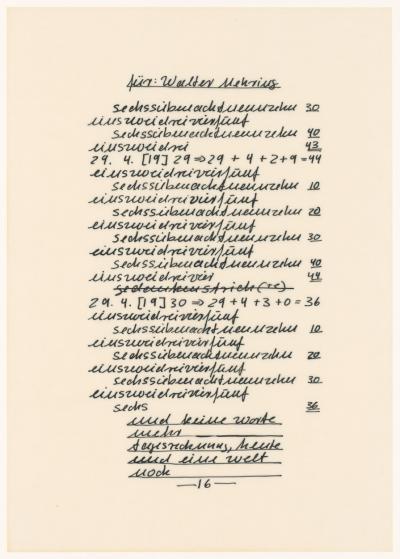 für: Walter Mehring
sechssiebenachtneunzehn 30
einszweidreivierfünf
sechssiebenachtneunzehn 40
einszweidrei 43
29. 4. [19] 29 ⇒ 29 + 4 + 2 + 9 = 44
einszweidreivierfünf
sechssiebenachtneunzehn 10
einszweidreivierfünf
sechssiebenachtneunzehn 20
einszweidreivierfünf
sechssiebenachtneunzehn 30
einszweidreivierfünf
sechssiebenachtneunzehn 40
einszweidreivier 44
29. 4. [19] 30 ⇒ 29 + 4 + 3 + 0 = 36
einszweidreivierfünf
sechssiebenachtneunzehn 10
einszweidreivierfünf
sechssiebenachtneunzehn 20
einszweidreivierfünf
sechssiebenachtneunzehn 30
einszweidreivierfünf
sechs 36
und keine worte
mehr
tagesrechnung, heute
und eine welt
noch
—16—